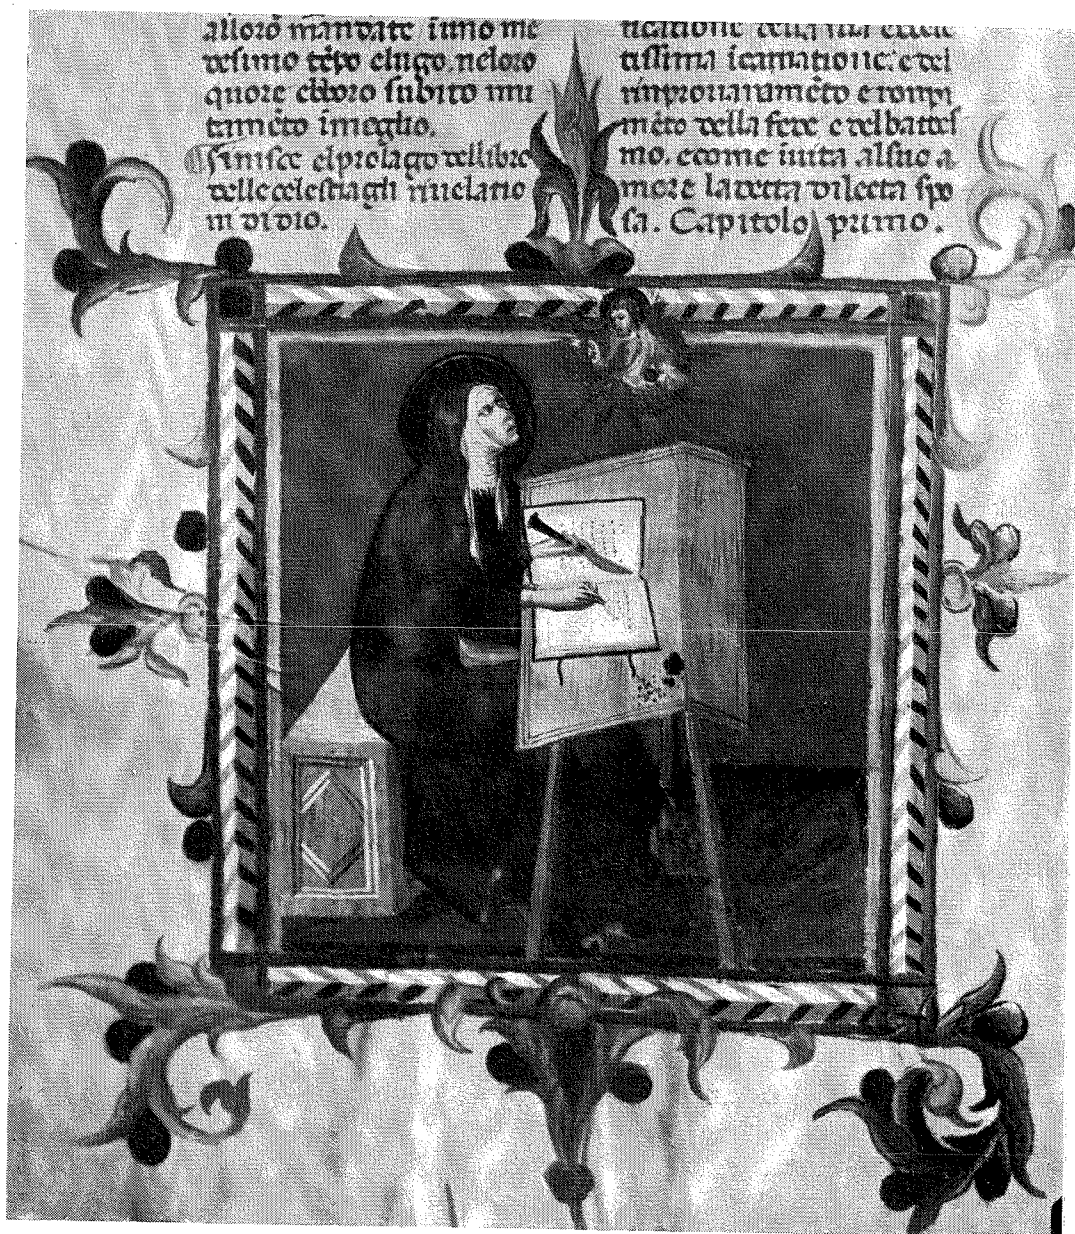 alloro mandate inno me
desimo tēpo elugo. neloro
quore ebboro subito mu
tamēto imeglio.
finisce elprolago dellibro
delle celestiagli riuelatio
ni di dio.
ticatione della
tissima icarnatione: e del
rimproueramēto e rompi
mēto della fede e delbattes
mo. e come iuita alsuo a
more la detta diletta spo
sa. Capitolo primo.